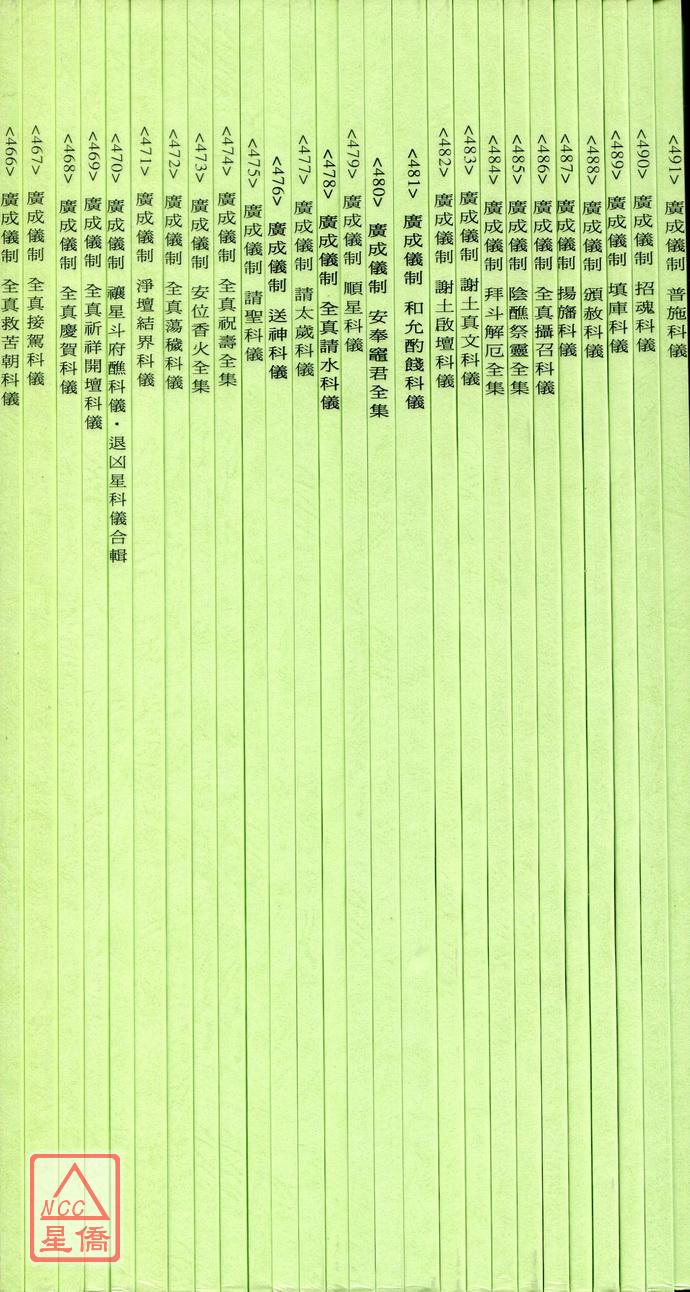 <491> 廣成儀制 普施科儀
<490> 廣成儀制 招魂科儀
<489> 廣成儀制 填庫科儀
<488> 廣成儀制 頒赦科儀
<487> 廣成儀制 揚旛科儀
<486> 廣成儀制 全真攝召科儀
<485> 廣成儀制 陰醮祭靈全集
<484> 廣成儀制 拜斗解厄全集
<483> 廣成儀制 謝土真文科儀
<482> 廣成儀制 謝土啟壇科儀
<481> 廣成儀制 和允酌餞科儀
<480> 廣成儀制 安奉竈君全集
<479> 廣成儀制 順星科儀
<478> 廣成儀制 全真請水科儀
<477> 廣成儀制 請太歲科儀
<476> 廣成儀制 送神科儀
<475> 廣成儀制 請聖科儀
<474> 廣成儀制 全真祝壽全集
<473> 廣成儀制 安位香火全集
<472> 廣成儀制 全真蕩穢科儀
<471> 廣成儀制 淨壇結界科儀
<470> 廣成儀制 禳星斗府醮科儀・退凶星科儀合輯
<469> 廣成儀制 全真祈祥開壇科儀
<468> 廣成儀制 全真慶賀科儀
<467> 廣成儀制 全真接駕科儀
<466> 廣成儀制 全真救苦朝科儀
NCC
星僑